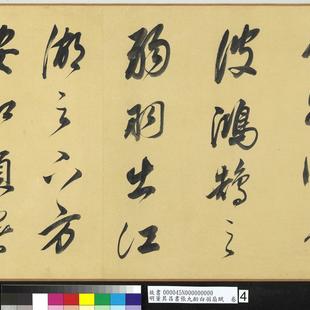 彼鴻鵠之
弱羽出江
湖之下方
安知煩暑
故書 000045N000000000
明董其昌書張九齡白羽扇賦 卷
4